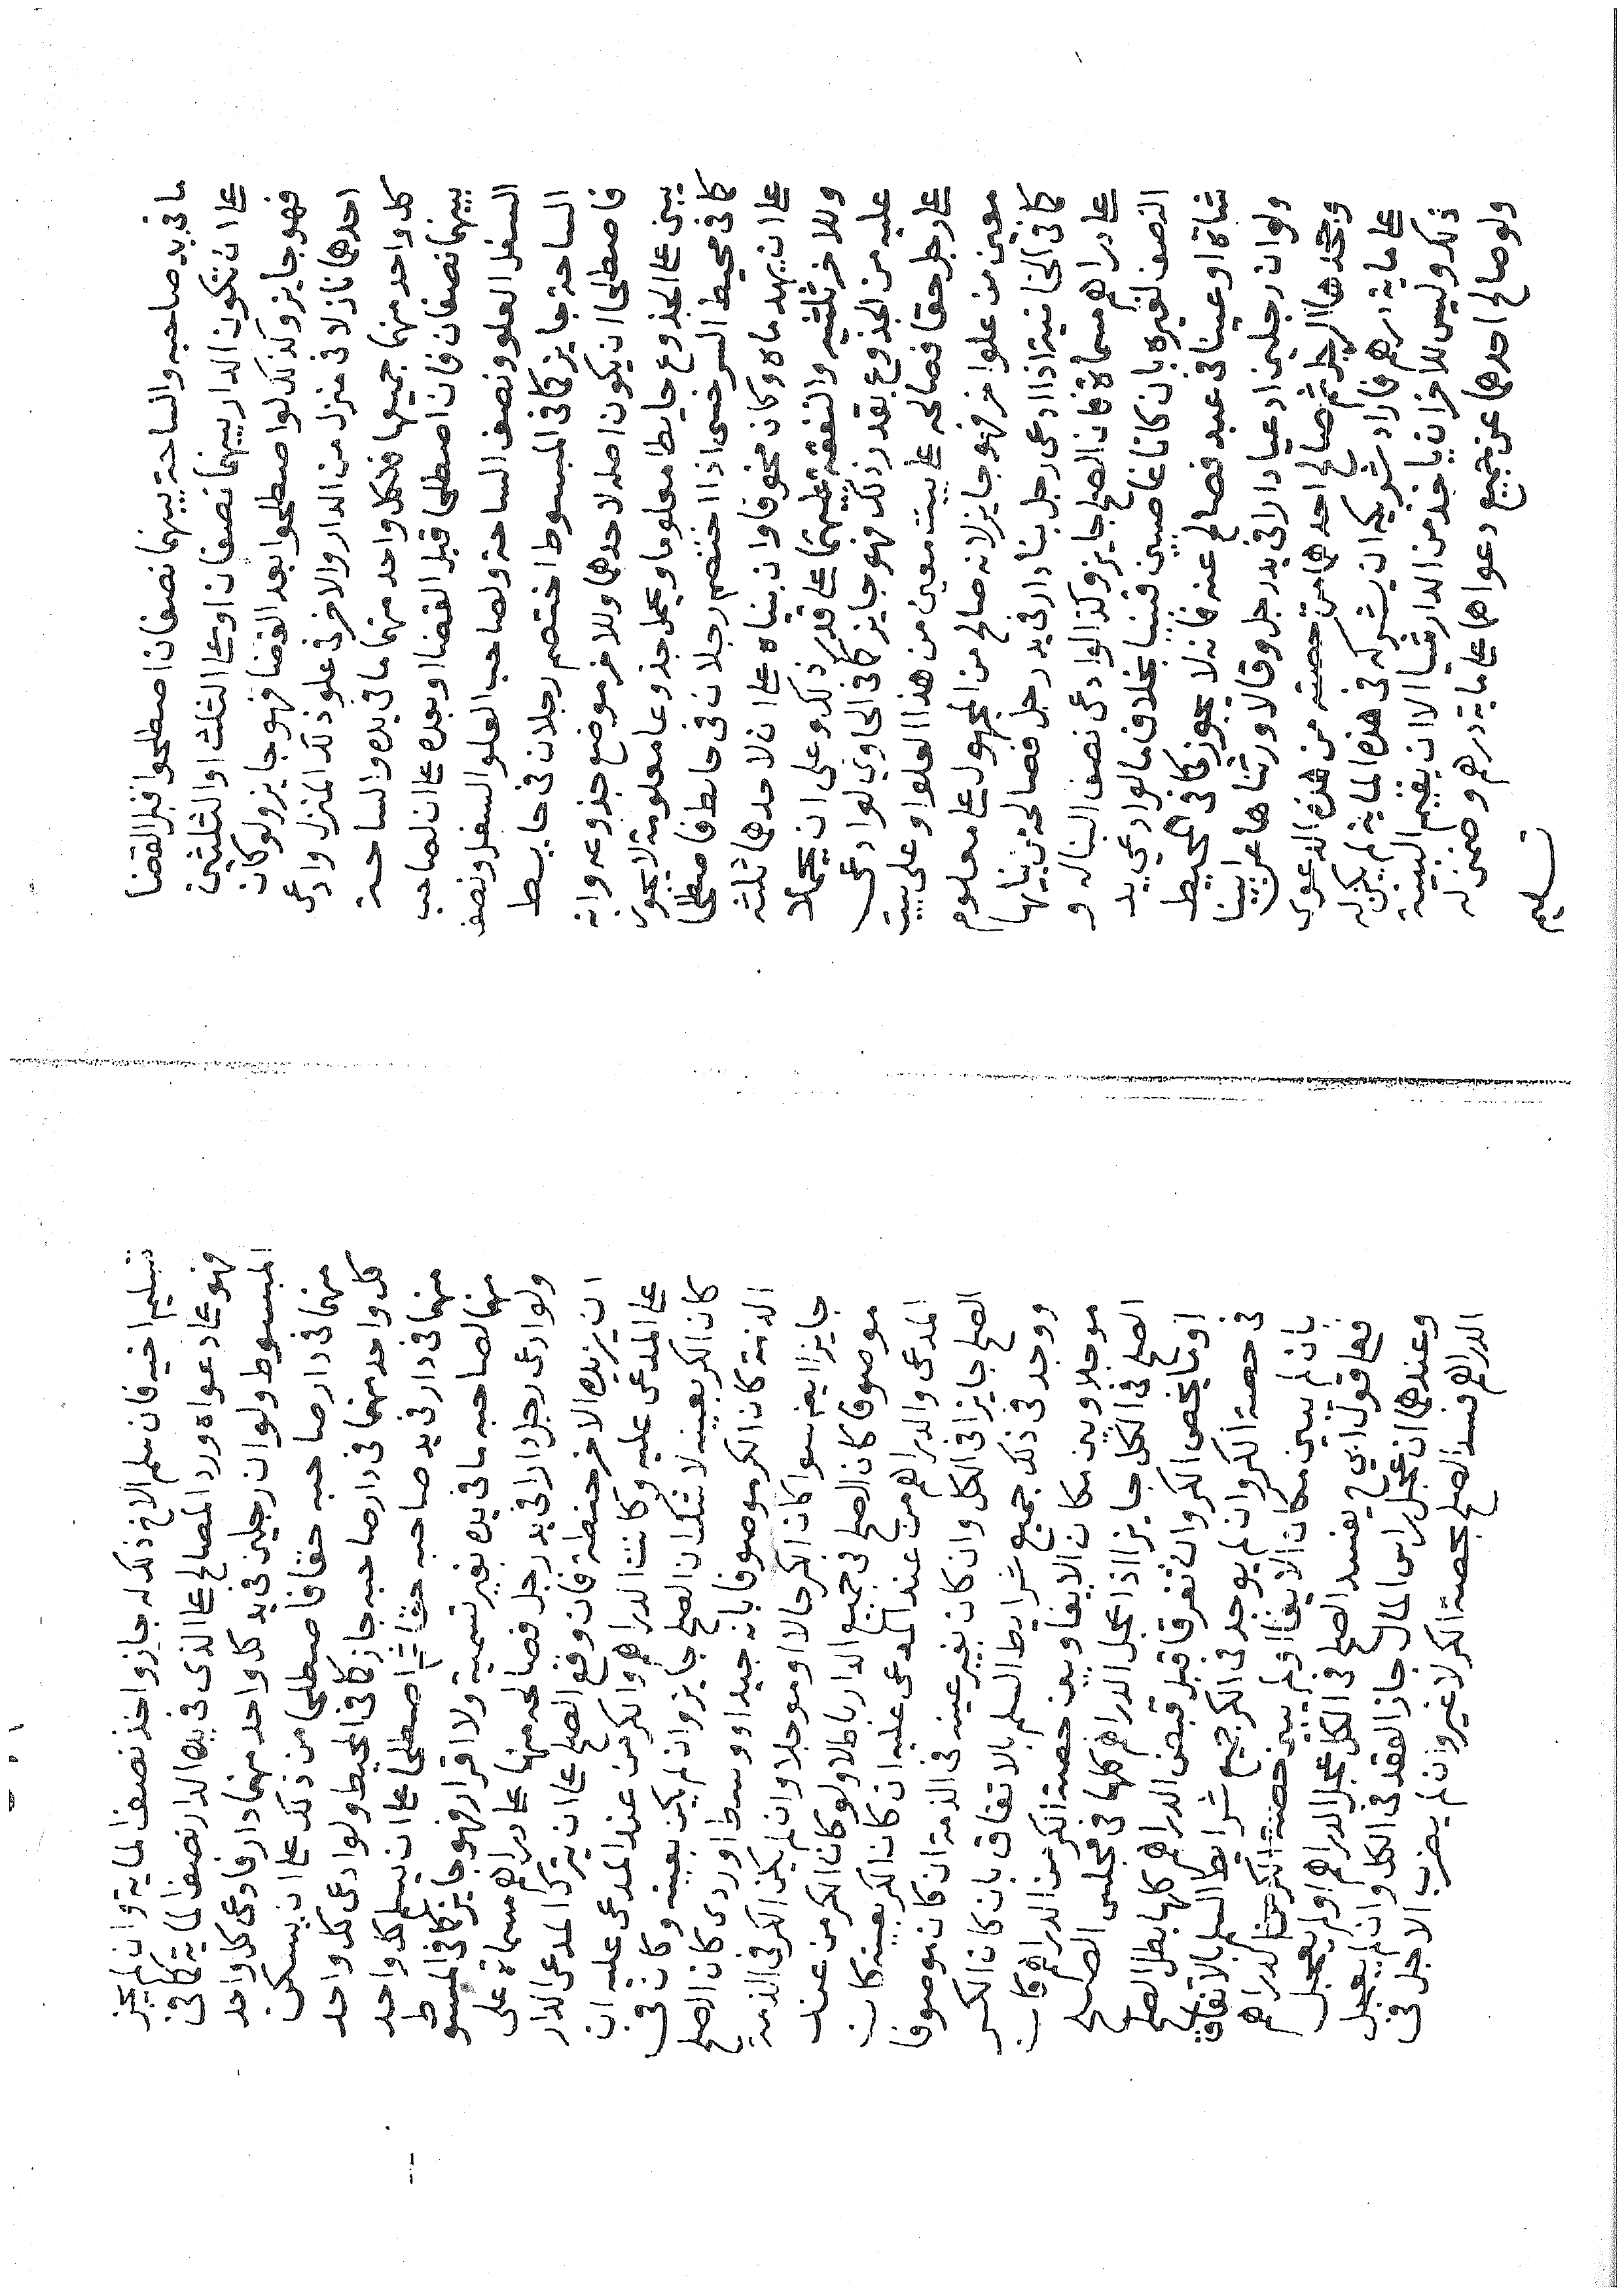 ما في يد صاحبه والساحة بينهما نصفان اصطلحوا قبل القضا
على ان تكون الدار بينهما نصفان او على الثلث او الثلثين
فهو جايز وكذلك لو اصطلحوا بعد القضا فهو جايز ولو كان
احدهما نازلا في منزل من الدار والاخر في علو ذلك المنزل وادعى
كل واحد منهما جميعها فلكل واحد منهما ما في يده والساحة
بينهما نصفان فان اصطلحا قبل القضا او بعده على ان لصاحب
السفل العلو ونصف الساحة ولصاحب العلو السفل ونصف
الساحة جايز كما في المبسوط اختصم رجلان في حايط
فاصطلحا ان يكون اصله لاحدهما وللاخر موضع جذوعه وانه
يبني على الجذوع حايطا معلوما ويحمل جذوعا معلومة لا يجوز
كما في محيط السرخسي اذا اختصم رجلان في حايط فاصطلحا
على ان يهدماه وكان مخوفا وان بنياه على ان لاحدهما ثلثه
وللاخر ثلثيه والنفقة عليهما على قدر ذلك وعلى ان يحملا
عليه من الجذوع بقدر ذلك فهو جايز كما في الحاوي لو ادعى
على رجل حقا فصالحه على بيت معين من هذا العلو او على بيت
معين من علو اخر فهو جايز لانه صالح من المجهول على معلوم
كما في الخانية اذا ادعى رجل بنا دار في يد رجل فصالحه من بنايها
على دراهم مسماة فان الصلح جايز وكذا لو ادعى نصف البنا له و
النصف لغيره بان كانا غاصبين فبنيا بخلاف ما لو ادعى يد
شاة او عينا في عبد فصالح عنه فانه لا يجوز كما في المحيط
ولو ان رجلين ادعيا دارا في يد رجل وقالا ورثناها عن ابينا
وجحدها الرجل ثم صالح احدهما من حصته من هذه الدعوى
على ماية درهم فاراد شريكه ان يشركه في هذه الماية لم يكن له
ذلك وليس للاخر ان ياخذ من الدار شيا الا ان يقيم البينة
ولو صالح احدهما عن جميع دعواهما على ماية درهم وضمن له
تسليم
تسليم اخيه فان سلم الاخ ذلك له جاز واخذ نصف الماية وان لم يجز
فهو على دعواه ورد المصالح على الذي في يده الدار نصف الماية كما في
المبسوط ولو ان رجلين في يد كل واحد منهما دار فادعى كل واحد
منهما في دار صاحبه حقا فاصطلحا من ذلك على ان يسكن
كل واحد منهما في دار صاحبه جاز كما في المحيط ولو ادعى كل واحد
منهما في دار في يد صاحبه حقا ثم اصطلحا على ان يسلم كل واحد
منهما لصاحبه ما في يده بغير تسمية ولا اقرار فهو جايز كما في المبسوط
ولو ادعى رجل دارا في يد رجل فصالحه منها على دراهم مسماة على
ان يزيده الاخر حنطة فان وقع الصلح على ان يترك المدعى الدار
على المدعى عليه وكانت الدراهم والكر من عند المدعى عليه ان
كان الكر بعينه لا شك ان الصلح جايز وان لم يكن بعينه وكان في
الذمة كان الكر موصوفا بانه جيد او وسط او ردي كان الصلح
جايزا ايضا سوا كان الكر حالا او موجلا وان لم يكن الكر في الذمة
موصوفا كان الصلح في جميع الدار باطلا ولو كان الكر من عند
المدعى والدراهم من عند المدعى عليه ان كان الكر بعينه كان
الصلح جايزا في الكل وان كان بغير عينه في الذمة ان كان موصوفا
ووجد في ذلك جميع شرايط السلم بالاتفاق بان كان الكر
موجلا وبين مكان الايفا وبين حصة الكر من الدراهم كان
الصلح في الكل جايزا اذا عجل الدراهم كلها في مجلس الصلح
او ما يخص الكر وان تفرقا قبل قبض الدراهم كلها بطل الصلح
في حصة الكر وان لم يوجد في الكر جميع شرايط السلم بالاتفاق
بان لم يبين مكان الايفا او لم يبين حصة الكر من الدراهم
فعلى قول ابي ح يفسد الصلح في الكل عجل الدراهم او لم يعجل
وعندهما ان عجل راس المال جاز العقد في الكل وان لم يعجل
الدراهم فسد الصلح بحصة الكر لا غير وان لم يضرب الاجل في